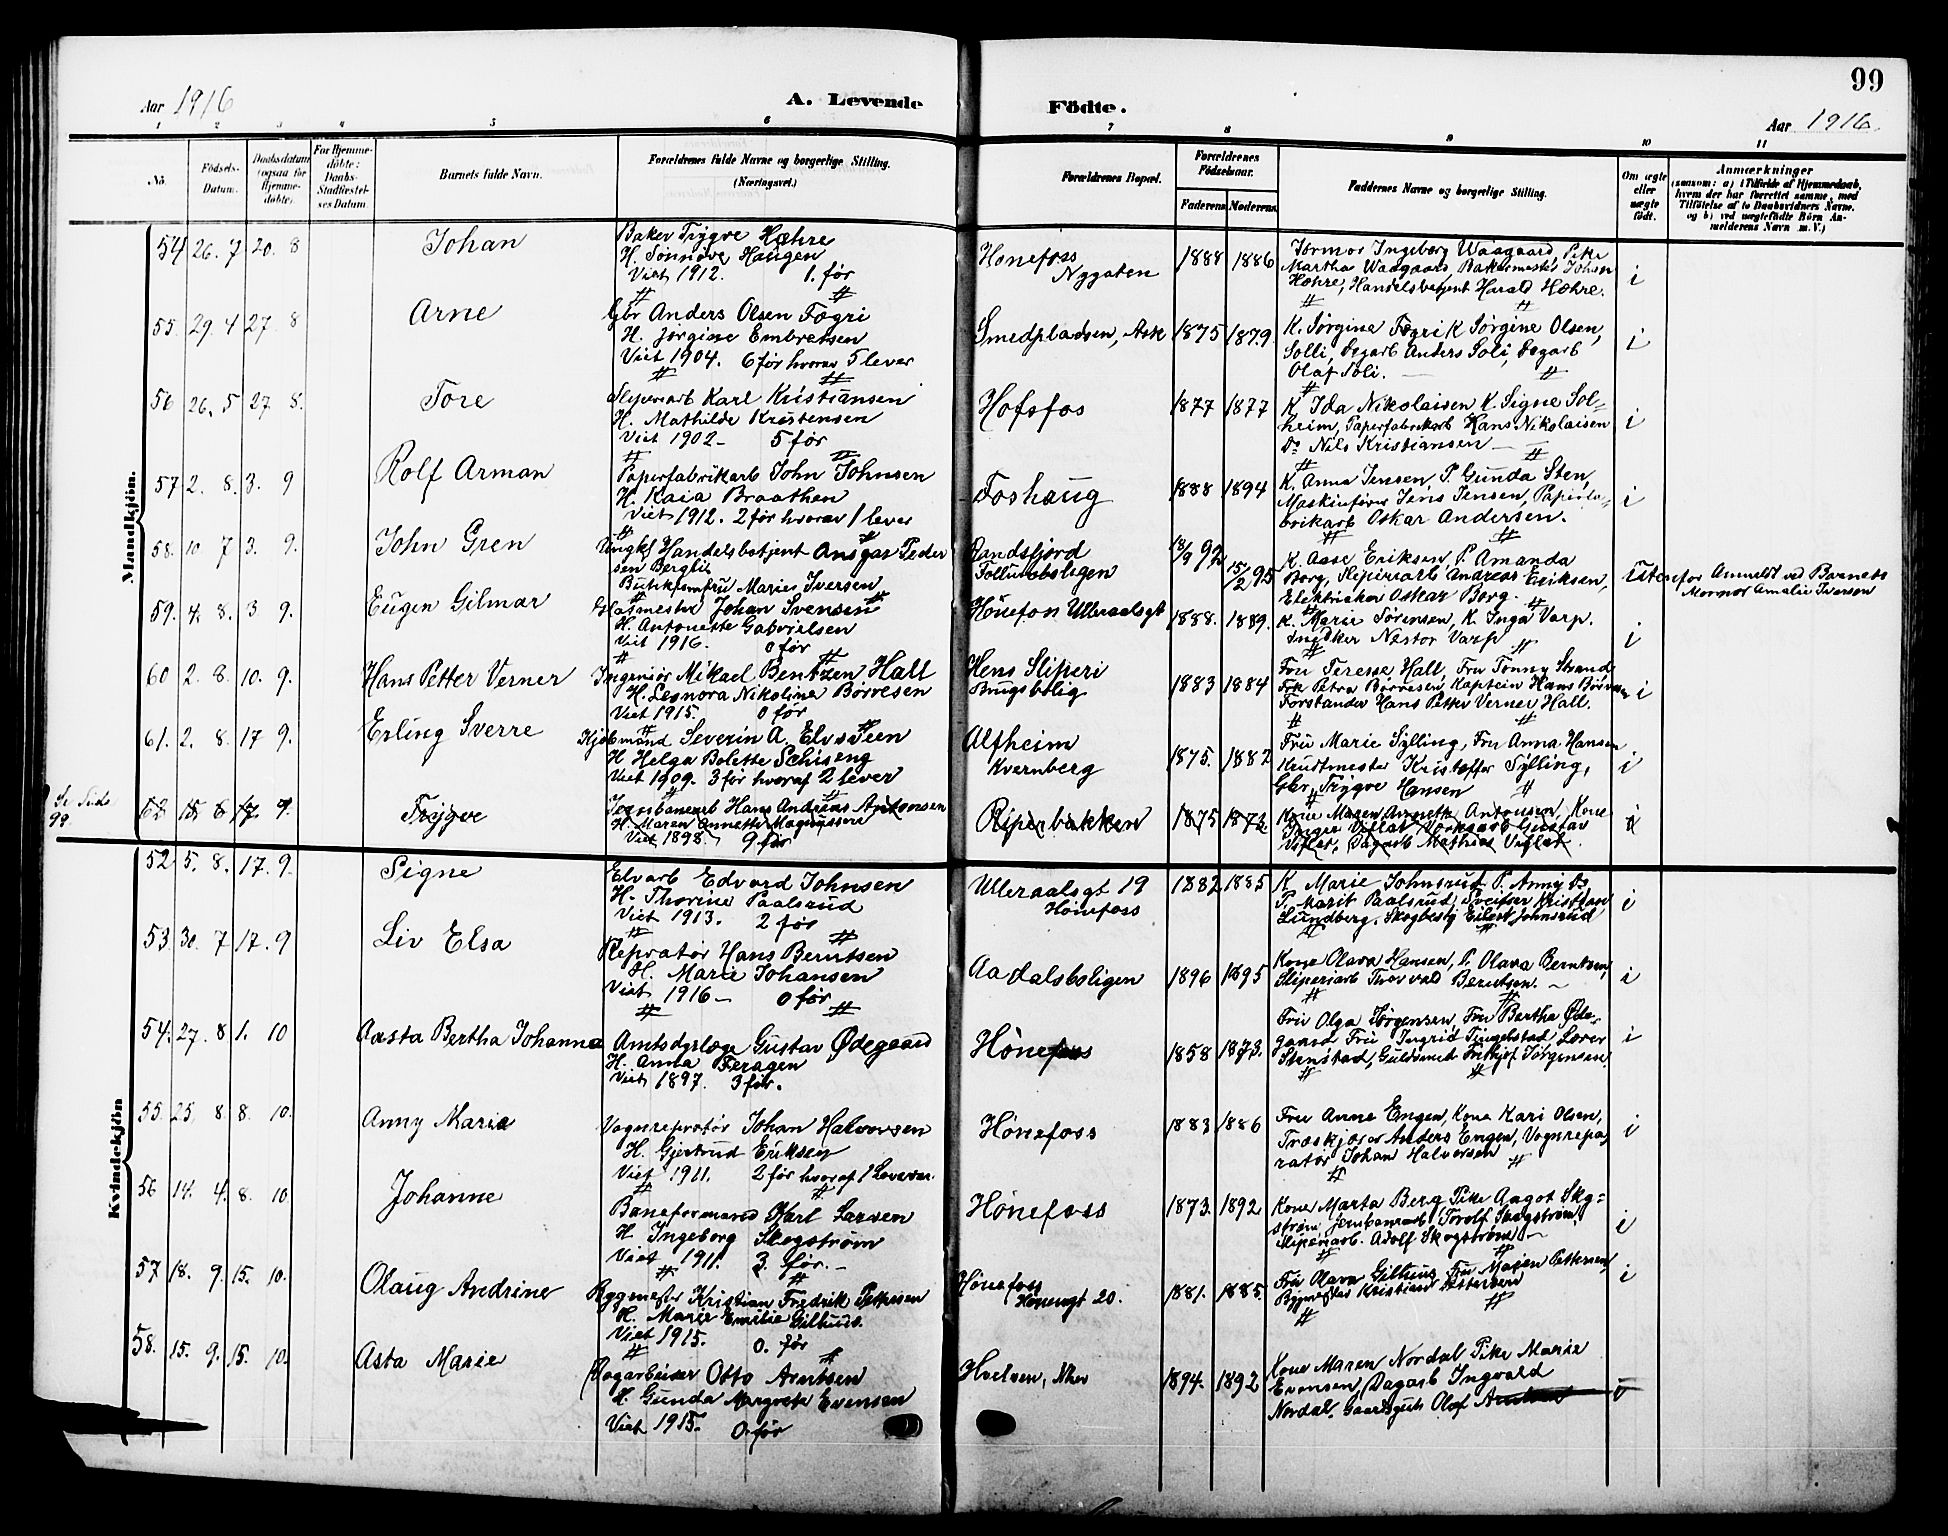 99
Aar 1916
A. Levende Födte.
Aar 1916.
1 2 3 4 5 6 7 8 9 10 11
No. Födsels-Datum. Daabsdatum (ogsaa for Hjemmedöbte). For Hjemmedöbte: Daabs-Stadfæstelses Datum. Barnets fulde Navn. Forældrenes fulde Navne og borgerlige Stilling. (Næringsvei.) Forældrenes Bopæl. Forældrenes Födselsaar. Faderens Moderens Faddernes Navne og borgerlige Stilling. Om ægte eller uægte födt. Anmærkninger
(saasom: a) i Tilfælde af Hjemmedaab, hvem der har forrettet samme, med Tilföielse af to Daabsvidners Navne. og b) ved uægtefödte Börn Anmelderens Navn m. V.)
Mandkjön.
54 26. 7 20. 8 Johan
Baker Trygve Hæhre
H. Sönnöve Haugen
Viet 1912. 1. før
Hønefoss
Nygaten
1888 1886
Jormor Ingeborg Waagaard, Pike
Martha Waagaard, Bakermester Johan
Hæhre, Handelsbetjent Harald Hæhre.
i
55. 29. 4 27. 8 Arne
Gbr Anders Olsen Fægri
H. Jørgine Embretsen
Viet 1904. 6 før hvorav 5 lever
Smedpladsen, Ask 1875 1879
K. Jørgine Fægri K Jørgine Olsen,
Solli, Dagarb Anders Soli, Dagarb
Olaf Soli.
i
56 26. 5 27 8. Tore
Sliperiarb Karl Kristiansen
H. Mathilde Kristensen
Viet 1902 - 5 før
Hofsfos 1877 1877
K. Ida Nikolaisen K. Signe Sol=
heim, Paperfabrikarb Hans Nikolaisen
Do Nils Kristiansen
i
57 2. 8. 3. 9 Rolf Arman
Paperfabrikarb John Johnsen
H. Kaia Braathen
Viet 1912. 2 før hvorav 1 lever
Foshaug 1888 1894
K. Anna Jensen, P. Gunda Sten,
Maskinfører Jens Jensen, Paperfa-
brikarb Oskar Andersen.
i
58. 10 7 3. 9. John Gren
Ungkl Handelsbetjent Ansgar Peder
sen Berglie
Butikjomfru Marie Iversen
Randsfjord
Follumboligen
13/9 92 15/2 95
K. Aase Eriksen, P. Amanda
Borg, Sliperiarb Andreas Eriksen,
Elektriker Oskar Borg.
Utenfor Anmeldt ved Barnets
Mormor Amalie Iversen
59. 4. 8. 3 9. Eugen Gilmar
Glasmester Johan Svensen
H. Antonette Gabrielsen
Viet 1916. 0 før
Hønefos Ulleraalsgt 1888. 1889.
K. Marie Sørensen, K. Inga Varp.
Snedker Nestor Varp
i
60 2. 8. 10. 9. Hans Petter Verner
Ingeniør Mikael Bentzen Hall
H. Leonora Nikoline Børresen
Viet 1915. 0 før
Hens Sliperi
Brugsbolig
1883 1884
Fru Terese Hall, Fru Tonny Strand
Frk Petra Børresen, Kaptein Hans Børresen
Forstander Hans Petter Verner Hall.
i
61. 2. 8. 17 9. Erling Sverre
Kjøbmand Severin A. Elvestien
H Helga Bolette Schiseng
Viet 1909. 3 før hvoraf 2 lever
Alfheim
Kvernberg
1875. 1882
Fru Marie Sylling, Fru Anna Hansen
Krudtmester Kristoffer Sylling,
Gbr, Trygve Hansen
i
Se Side
99.
62 15 6 17. 9. Trygve
Jernbanearb Hans Andreas Antonsen
H. Maren Annette Magnussen
Viet 1898. 9 før
Riperbakken 1875 1873
Kone Maren Annette Antonsen, Kone
Gustav
Dagarb Mathias
i
Kvindekjön
52 5. 8. 17. 9. Signe
Elvarb Edvard Johnsen
H. Thorine Paalsrud
Viet 1913. 2 før
Ulleraalsgt 19
Hønefoss
1882 1885
K Marie Johnsrud P. Anny Do,
P. Marit Paalsrud, Sveitser Kristian
Lundberg, Skogbestyr Eilert Johnsrud
i
53. 30. 7 17. 9 Liv Elsa
Repratør Hans Berntsen
H. Marie Johansen
Viet 1916 - 0 før
Aadalsboligen 1896 1895
Kone Olava Hansen, P. Olava Berntsen,
Sliperiarb Thorvald Berntsen.
i
54. 27. 8 1. 10 Aasta Bertha Johanne
Amtsdyrlæge Gustav Ødegaard
H. Anna Feragen
Viet 1897. 3 før.
Hønefoss 1858 1873.
Fru Olga Jørgensen, Fru Bertha Øde-
gaard Fru Ingrid Tingelstad Lærer
Stenstad, Guldsmed Fritjof Jørgensen
i
55. 25. 8. 8. 10. Anny Maria
Vognrepratør Johan Halvorsen
H. Gjertrud Eriksen
Viet 1911. 2 før hvoraf 1 Levever
Hønefoss 1883 1886
Fru Anne Engen, Kone Kari Olsen,
Træskjærer Anders Engen, Vognrepa
ratør Johan Halvorsen
i
56 14. 4. 8. 10 Johanne
Baneformand Karl Larsen
H Ingeborg Skogstrøm
Viet 1911. 3. før.
Hønefoss 1873. 1892
Kone Marta Berg Pike Aagot Skg=
strøm Jernbanearb Torolf Skogstrøm,
Sliperiarb. Adolf Skogstrøm
i
57 18. 9. 15. 10. Olaug Andrine
Bygmester Kristian Fredrik Pettersen
H. Marie Emilie Gilhuus.
Viet 1915. 0. før
Hønefoss
Hønengt 20.
1881. 1885.
Fru Olava Gilhuus, Fru Maren Pettersen,
Bygmester Kristian Pettersen
i
58. 15. 9. 15. 10. Asta Marie
Dagarbeider Otto Arntsen
H Gunda Margrete Evensen
Viet 1915. 0. før
Hvelven, Aker 1894. 1892
Kone Maren Nordal Pike Marie
Evensen, Dagarb Ingvald
Nordal, Gaardsgut Olaf Arntsen